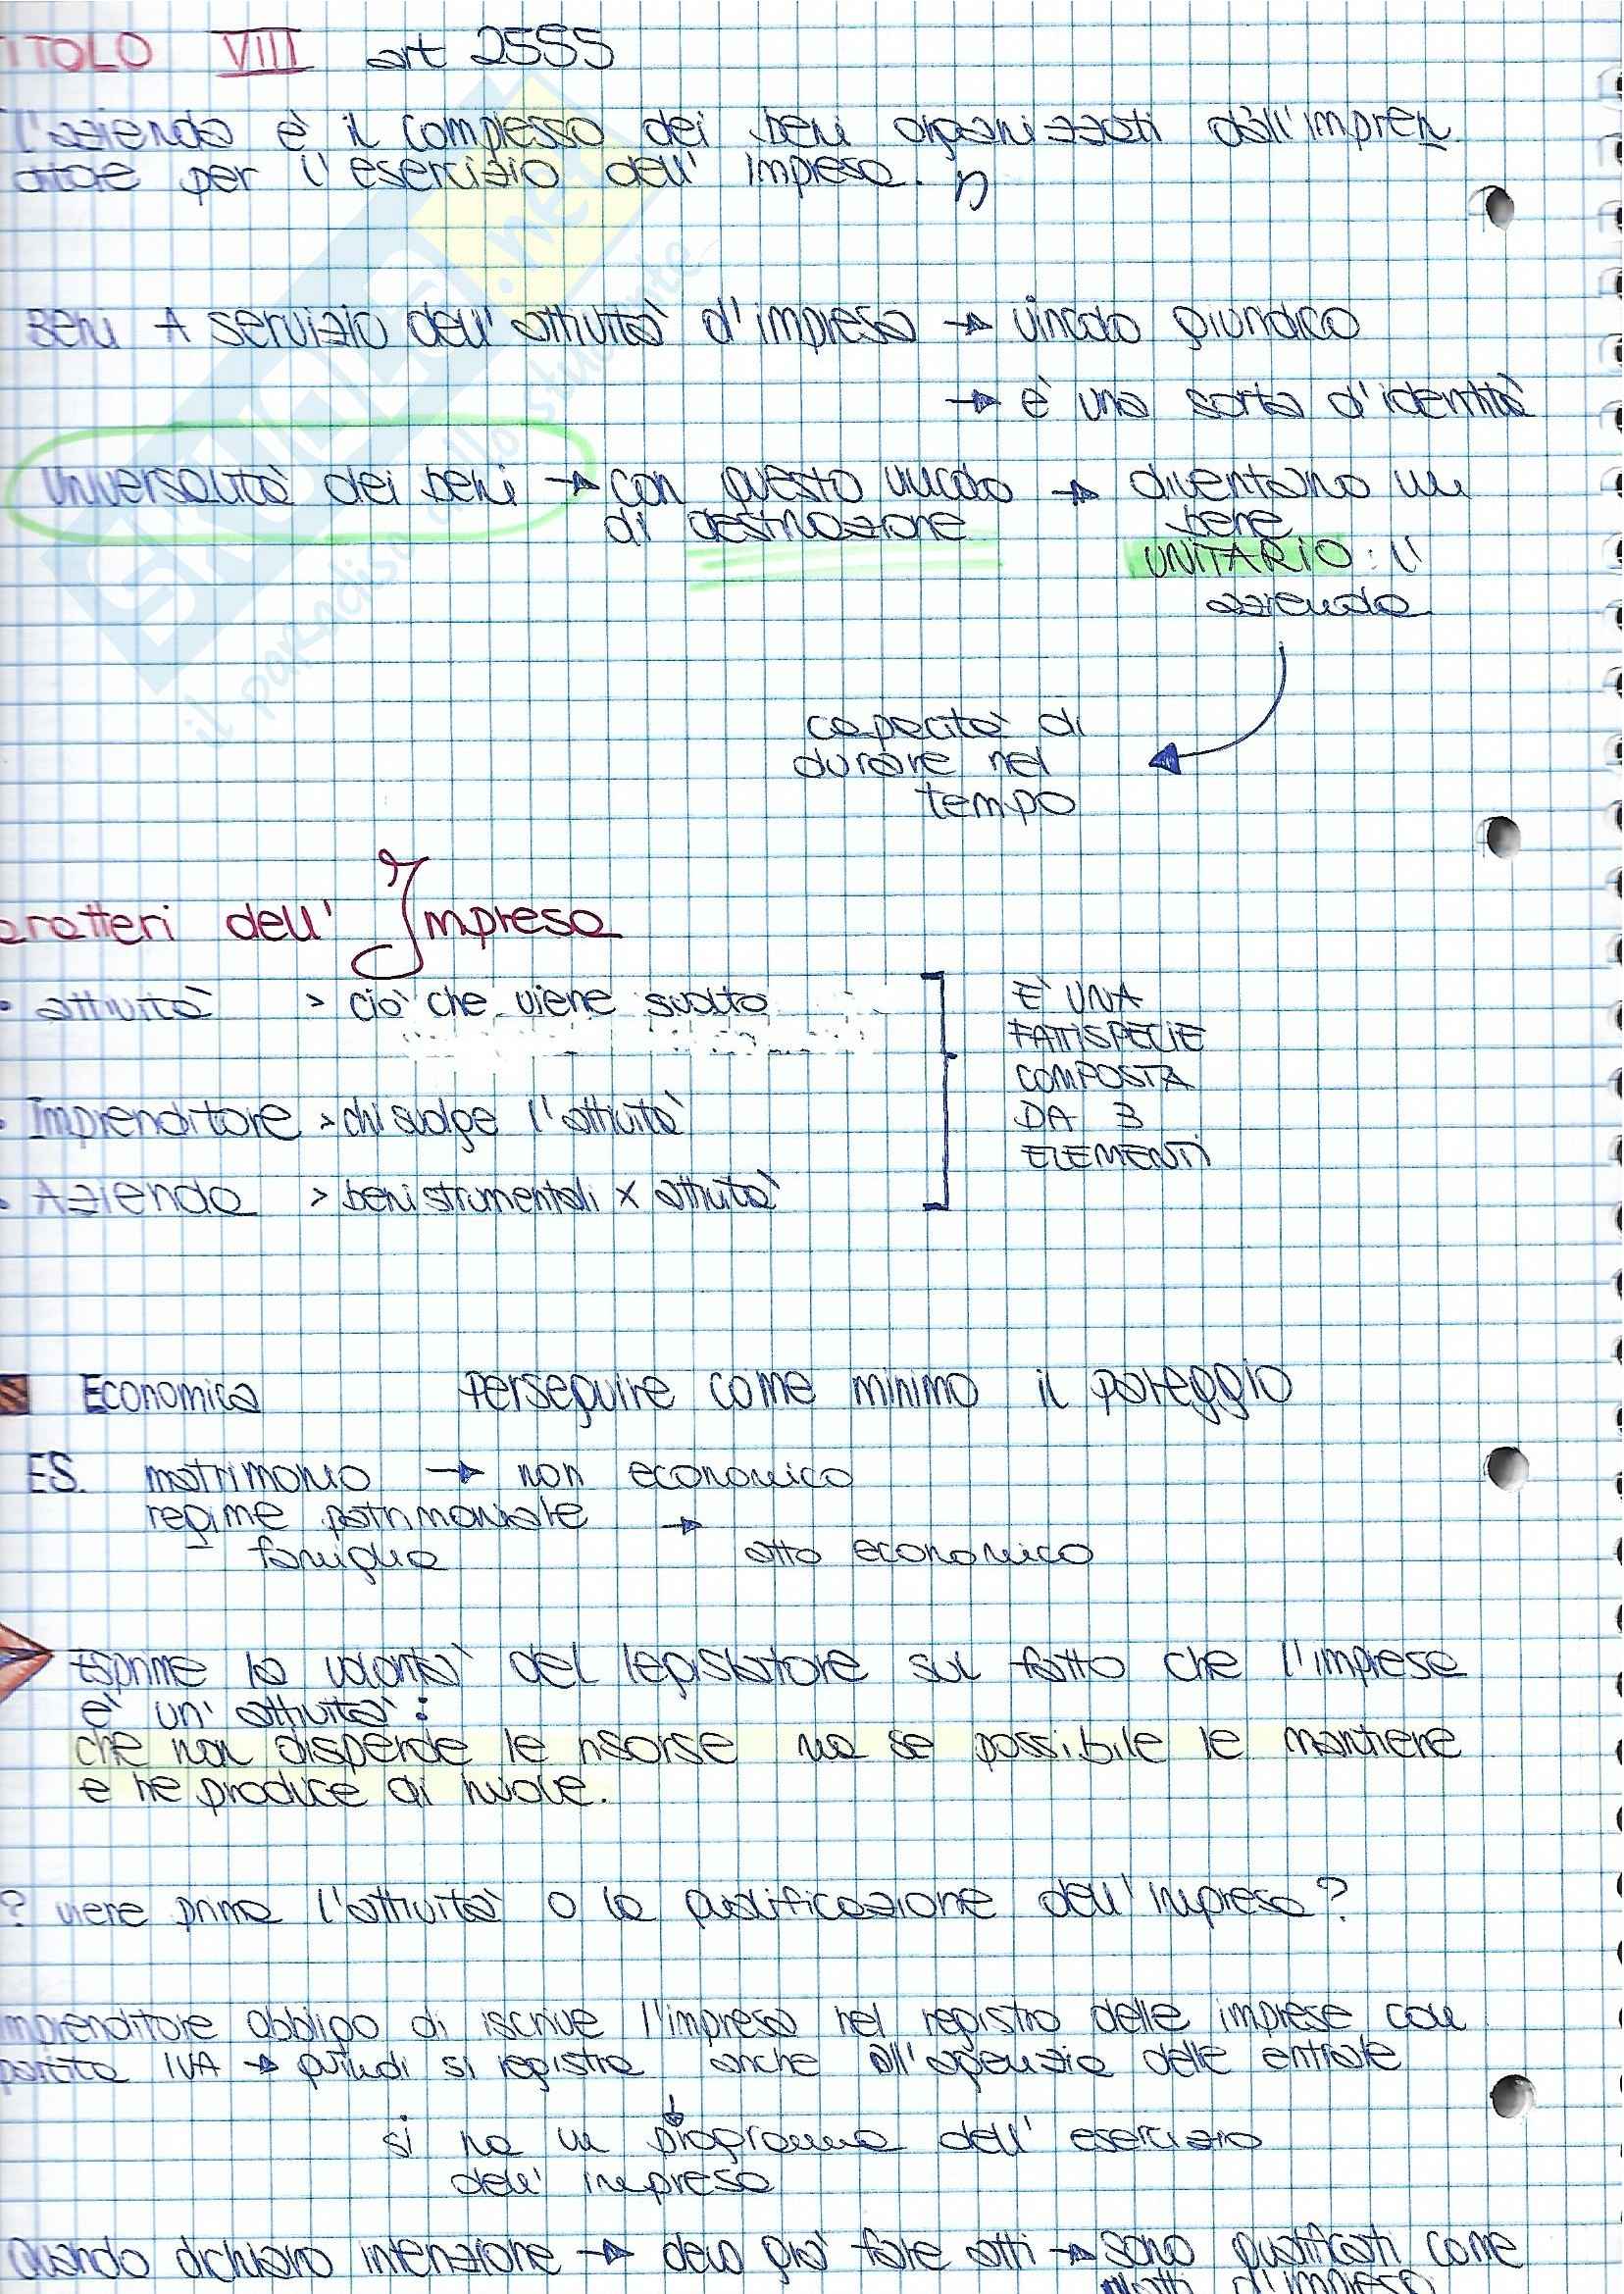 ITOLO VIII art 2555
l'azienda è il complesso dei beni organizzati dall'impren
ditore per l'esercizio dell' impresa.
Beni A servizio dell'attività d'impresa → vincolo giuridico
→ è una sorta d'identità
Universalità dei beni → con questo vincolo → diventano un
di destinazione bene
UNITARIO: l'
azienda
capacità di
durare nel
tempo
aratteri dell' Impresa
• attività > ciò che viene svolto
• Imprenditore > chi svolge l'attività
• Azienda > beni strumentali x attività
È UNA
FATTISPECIE
COMPOSTA
DA 3
ELEMENTI
Economica perseguire come minimo il pareggio
ES. matrimonio → non economico
regime patrimoniale →
famiglia atto economico
Esprime la volontà del legislatore sul fatto che l'impresa
è un' attività:
che non disperde le risorse ma se possibile le mantiene
e ne produce di nuove.
? viene prima l'attività o la qualificazione dell'impresa?
mprenditore obbligo di iscrive l'impresa nel registro delle imprese con
partita IVA → quindi si registra anche all'agenzia delle entrate
si ha un programma dell' esercizio
dell' impresa
Quando dichiaro intenzione → devo già fare atti → sono qualificati come
atti d'impresa
SKUOLA.net
il paradiso dello studente